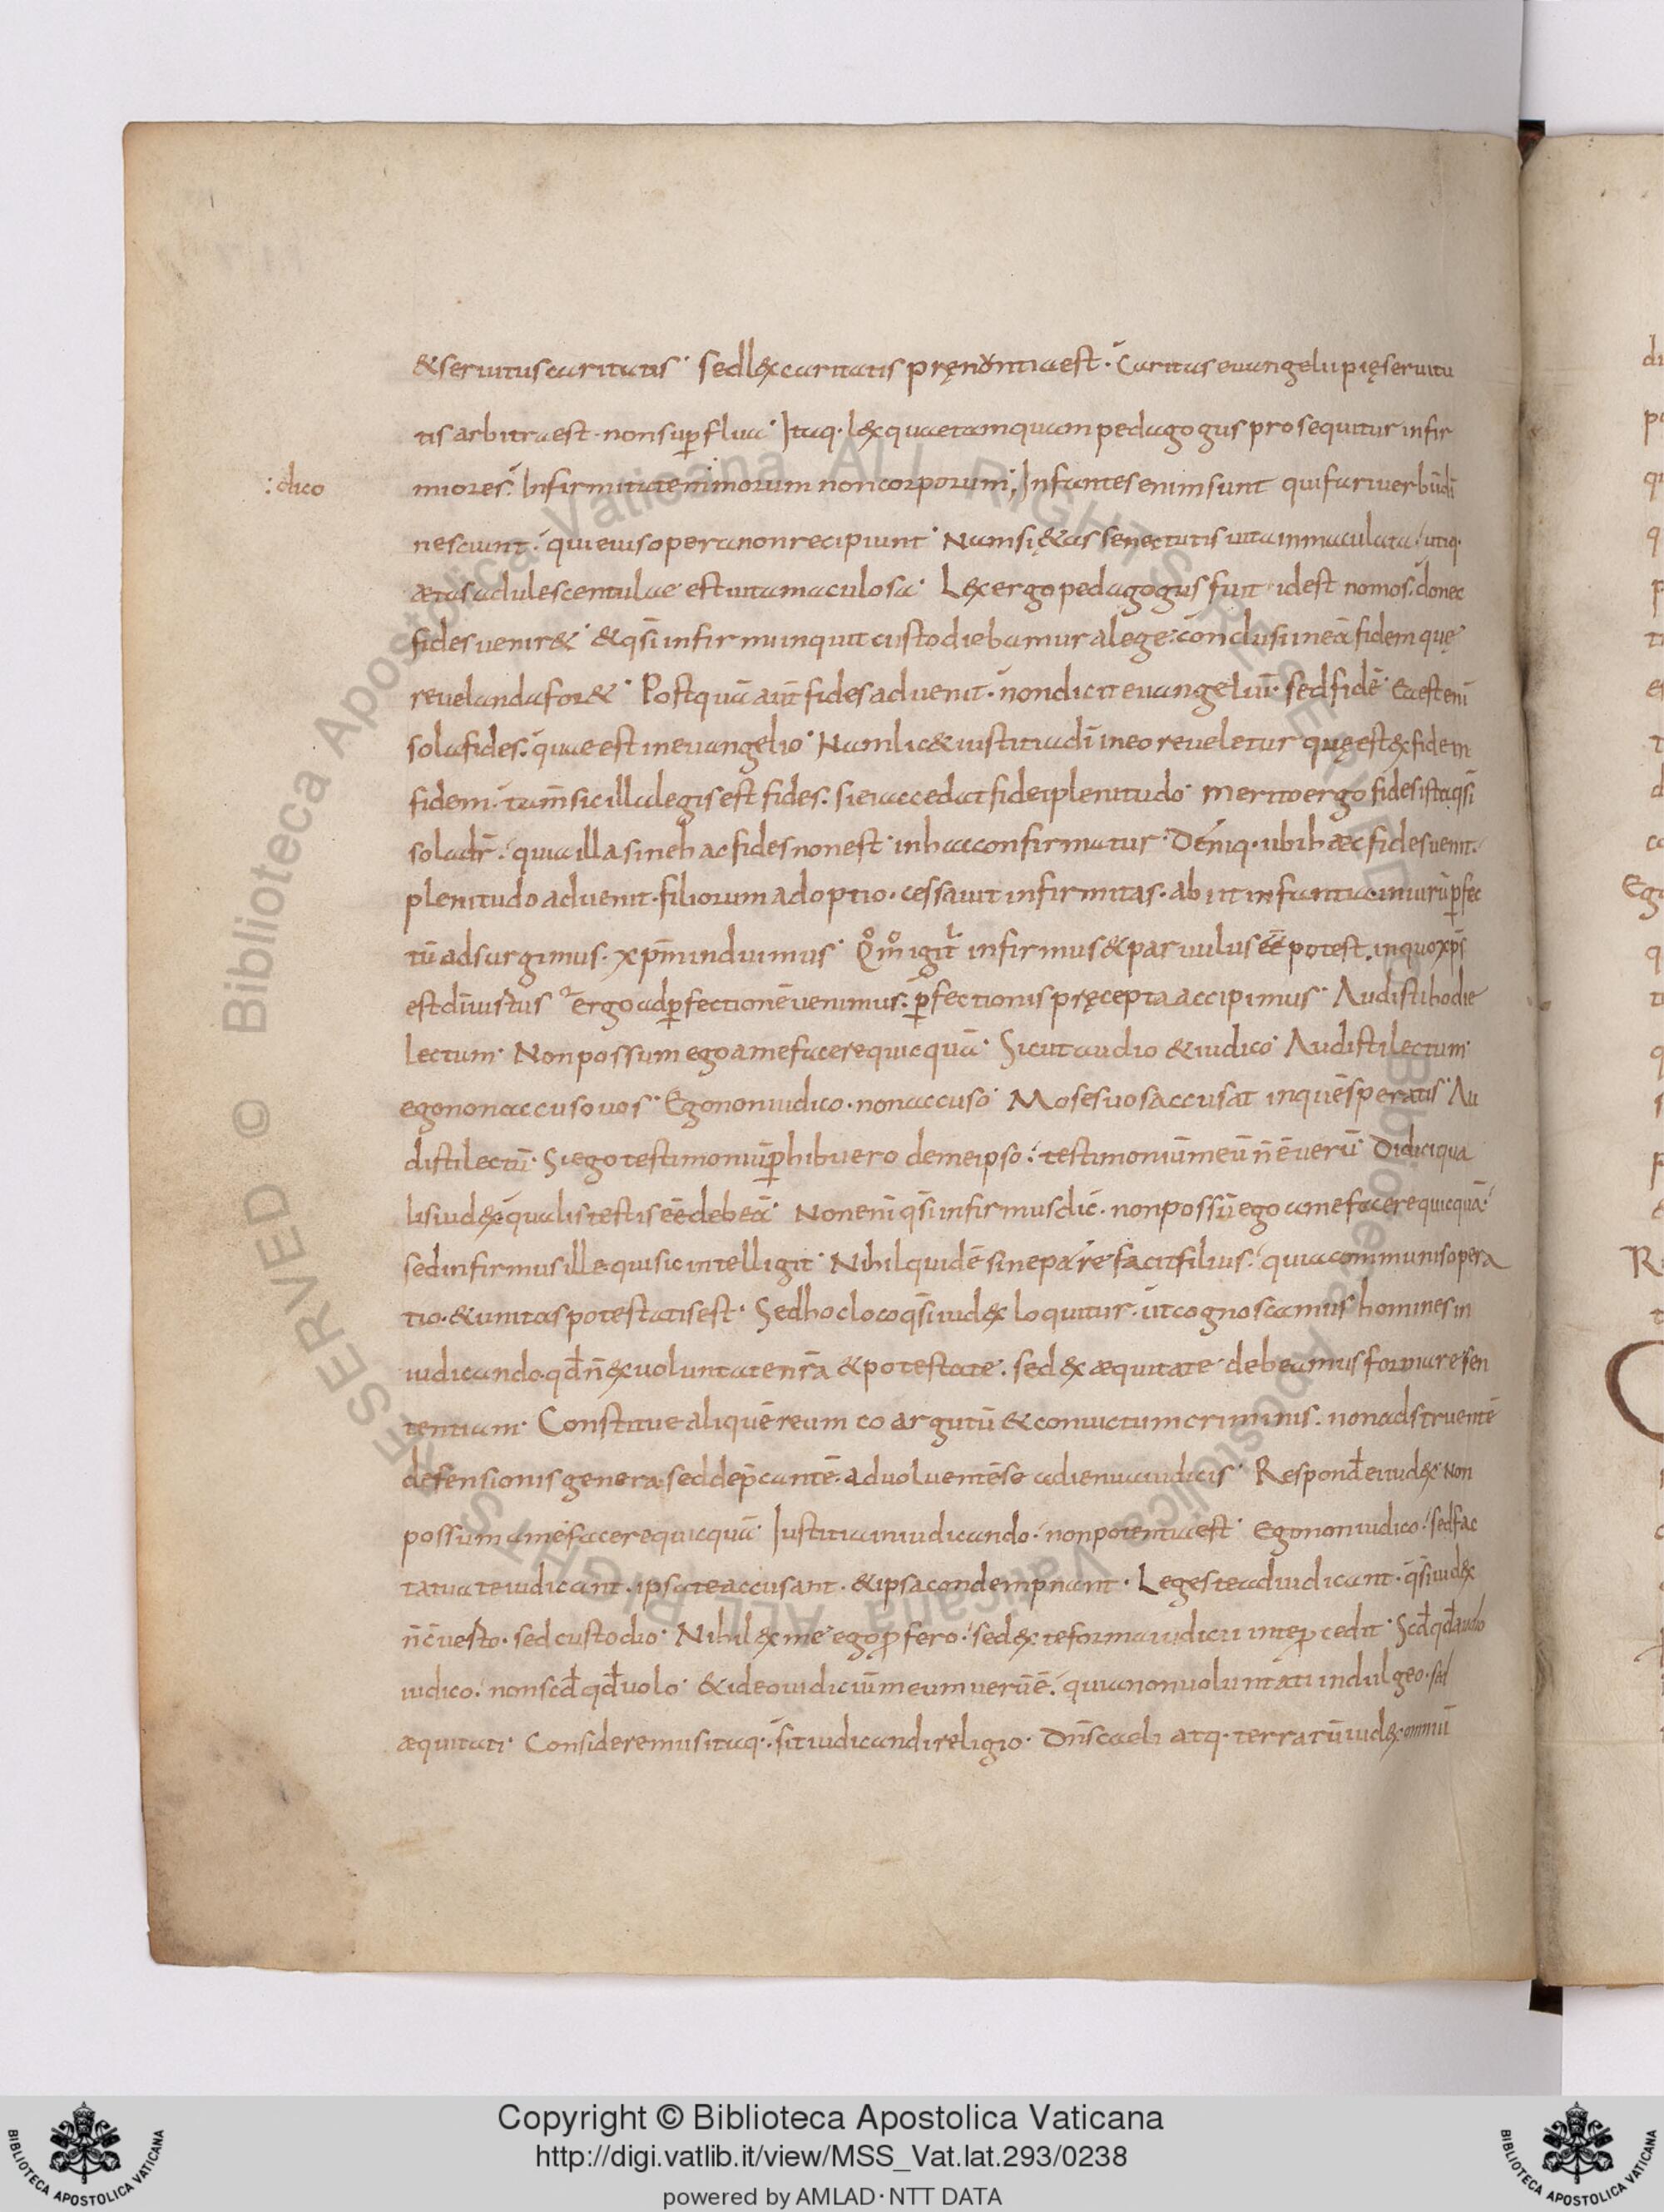 & seruitus caritatis · sed lex caritatis prenontia est · Caritas euangelii pię seruitu
tis arbitra est · non supflua · Itaq · lex quae tamquam pedagogus prosequitur infir
: dico
miores · Infirmitatem morum non corporum ; Infantes enim sunt qui fari uerbū dī
nesciunt · qui eius opera non recipiunt · Nam si &as senectutis uita inmaculata · utiq ·
ætas adulescentulae est uita maculosa · Lex ergo pedagogus fuit id est nomos · donec
fides uenir& · & qsī infirmi inquit custodiebamur a lege · conclusi in eā fidem quę
reuelanda for& · Postquā aūt fides aduenit · non dicit euangeliū · sed fidē · Ea est enī
sola fides · quae est in euangelio · Nam lic& iustitia dī in eo reueletur quę est ex fide in
fidem · tam̄ sic illa legis est fides · si ei accedat fidei plenitudo · merito ergo fides ista qsī
sola dr̄ · quia illa sine hac fides non est · in hac confirmatur · Deniq · ubi haec fides uenit ·
plenitudo aduenit · filiorum adoptio · cessauit infirmitas · abiit infantia · in uirū pfec
tū adsurgimus · xpm̄ induimus · Qm̄ igit̄ infirmus & paruulus eē potest · in quo xps̄
est dī uirtus ergo ad pfectionē uenimus · pfectionis pręcepta accipimus · Audisti hodie
lectum · Non possum ego a me facere quicquā · Sicut audio & iudico · Audisti lectum ·
ego non accuso uos · Ego non iudico · non accuso · Moses uos accusat in quē speratis · Au
disti lectū · Si ego testimoniū phibuero de me ipso · testimoniū meū n̄ ē uerū · Didici qua
lis iudex qualis testis eē debeā · Non enī qsī infirmus dic̄ · non possū ego a me facere quicquā ·
sed infirmus ille qui sic intelligit · Nihil quidē sine patre facit filius · quia communis opera
tio · & unitas potestatis est · Sed hoc loco qsī iudex loquitur · ut cognoscamus homines in
iudicando · qd̄ n̄ ex uoluntate nrā & potestate · sed ex æquitate debeamus formare sen
tentiam · Constitue aliquē reum coargutū & conuictum criminis · non adstruentē
defensionis genera · sed depcantē · aduoluentē se ad ienua iudicis · Respond& ei iudex · Non
possum a me facere quicquā · Iustitia in iudicando · non potentia est · Ego non iudico · sed fac
ta tua te iudicant · ipsa te accusant · & ipsa condempnant · Leges te adiudicant · qsī iudex
n̄ c̄uesto · sed custodio · Nihil ex me ego pfero · sed ex te forma iudicii in te pcedit · Scd̄ qd̄ audio
iudico · non scd̄ qd̄ uolo · & ideo iudiciū meum uerū ē · quia non uoluntati indulgeo · sed
æquitati · Consideremus itaq · sit iudicandi religio · Dns̄ caeli atq · terrarū iudex omniū
Copyright © Biblioteca Apostolica Vaticana
http://digi.vatlib.it/view/MSS_Vat.lat.293/0238
powered by AMLAD · NTT DATA
BIBLIOTECA APOSTOLICA VATICANA
BIBLIOTECA APOSTOLICA VATICANA